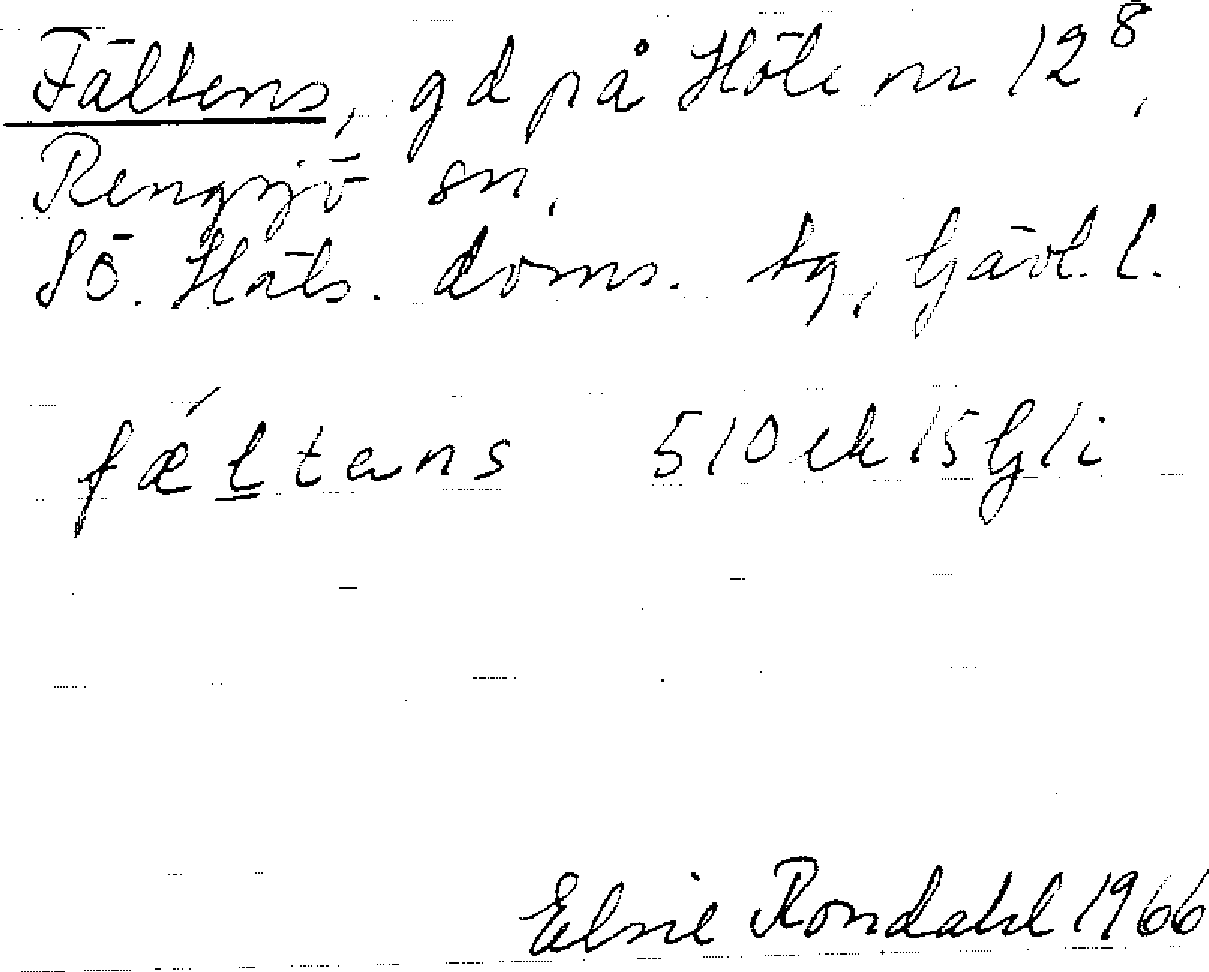 Fältens, gd på Höle nr 12⁸,
Rengsjö sn,
Sö. Häls. doms. tg, Gävl. l.
fǽl̲tens 510 ek 15 G 1 i
Elsie Rondahl 1966